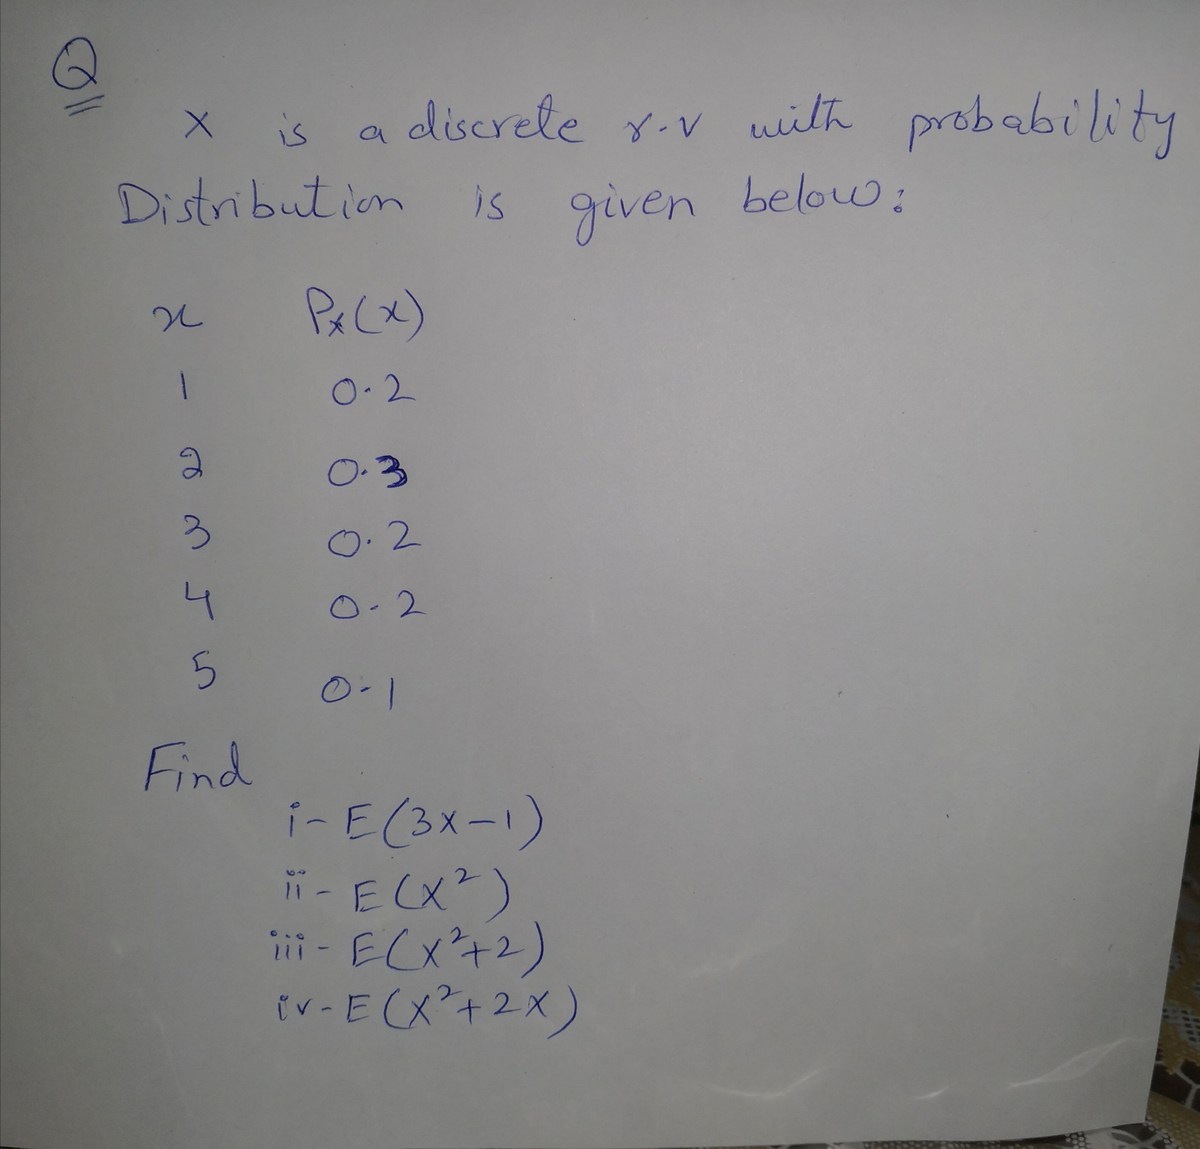 Q
X is a discrete r.v with probability
Distribution is given below:
x Px(x)
1 0.2
2 0.3
3 0.2
4 0.2
5 0.1
Find
i- E(3x-1)
ii- E(X²)
iii- E(X²+2)
iv- E(X²+2X)